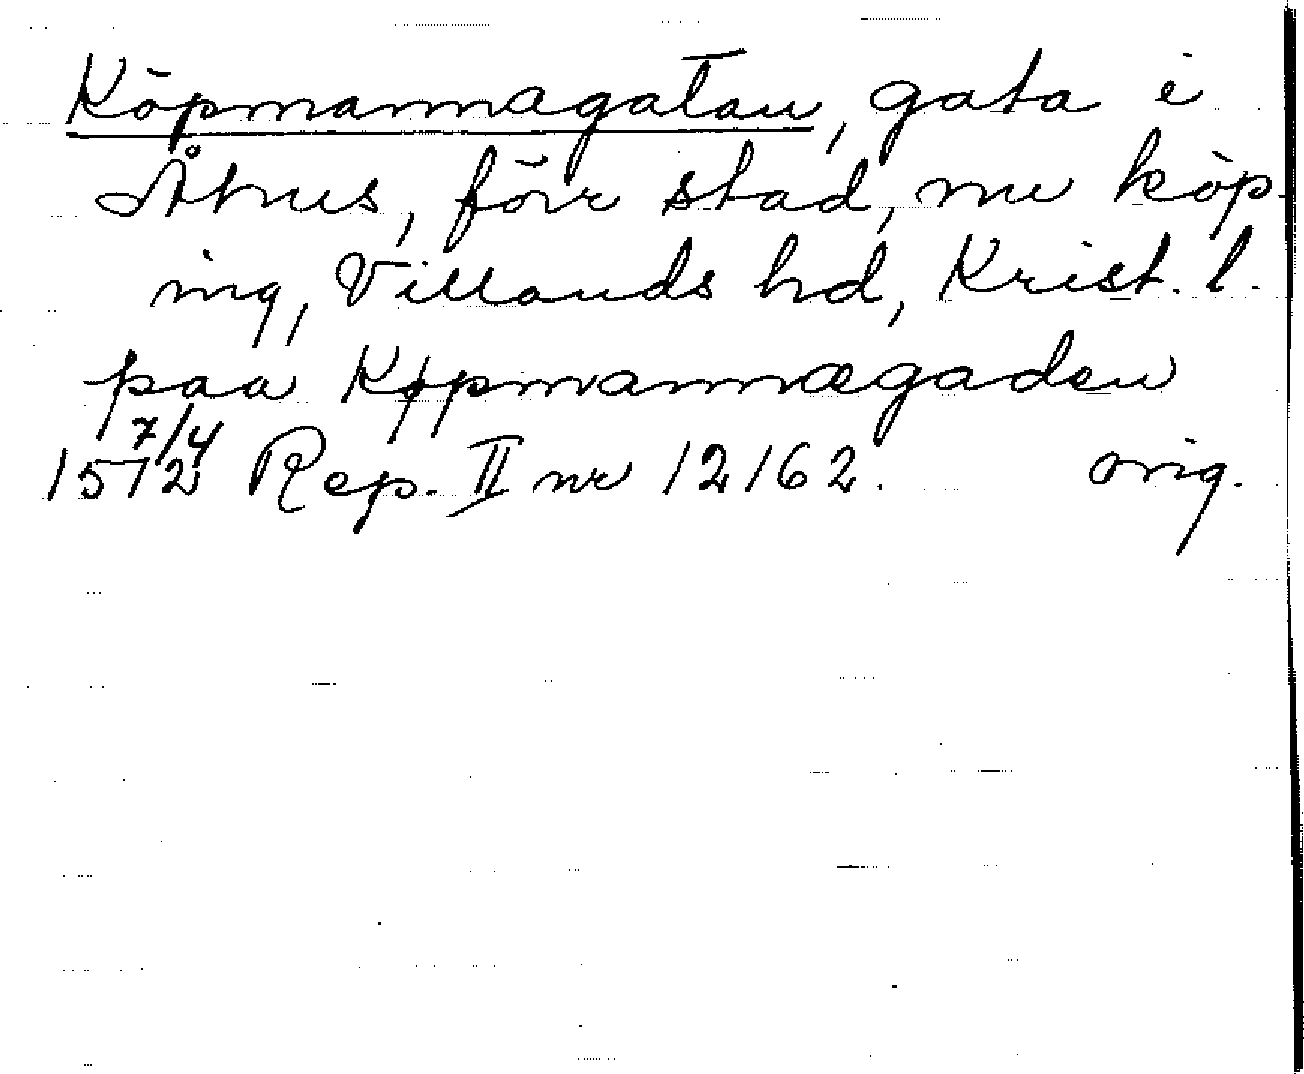 Köpmannagatan, gata i
Åhus, förr stad, nu köp-
ing, Villands hd, Krist. l.
paa Køpmannægaden
1572 7/4 Rep. II nr 12162. orig.